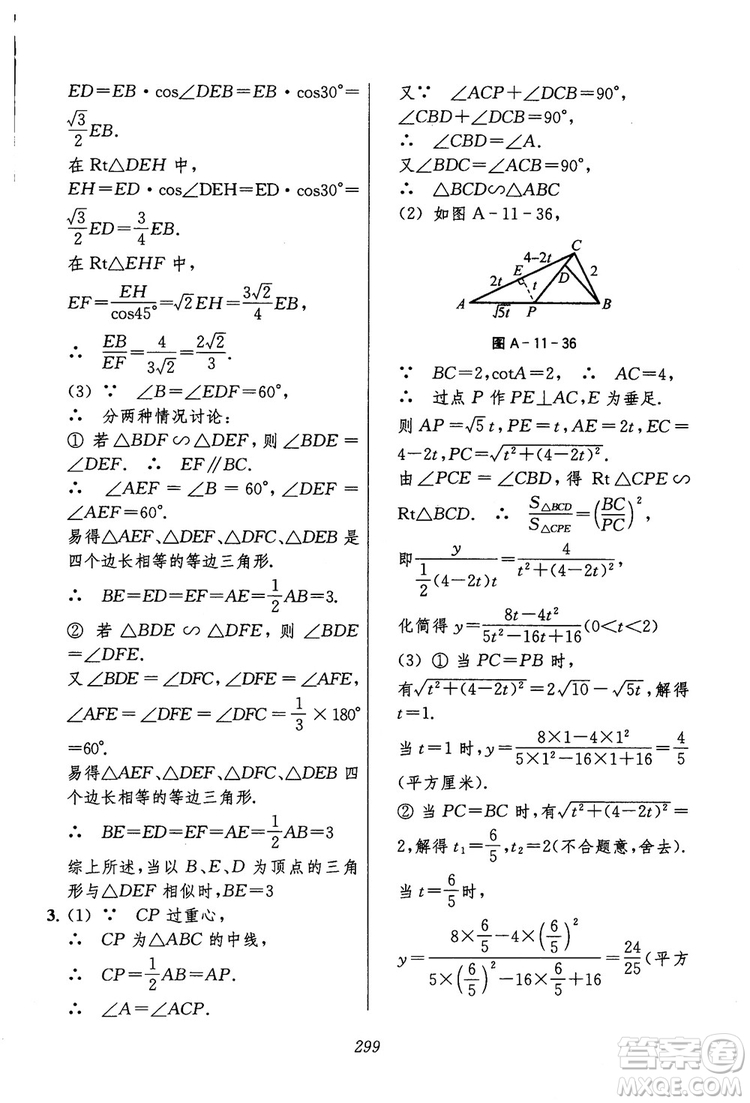 ED=EB·cos∠DEB=EB·cos30°=
√3/2 EB.
在 Rt△DEH 中,
EH=ED·cos∠DEH=ED·cos30°=
√3/2 ED=3/4 EB.
在 Rt△EHF 中,
EF=EH/cos45°=√2EH=3√2/4 EB,
∴ EB/EF=4/3√2=2√2/3.
(3) ∵ ∠B=∠EDF=60°,
∴ 分两种情况讨论:
① 若△BDF∽△DEF, 则∠BDE=
∠DEF. ∴ EF∥BC.
∴ ∠AEF=∠B=60°,
易得△AEF、△DEF、△DFC、△DEB 是
四个边长相等的等边三角形.
∴ BE=ED=EF=AE=1/2 AB=3.
② 若 △BDE∽△DFE, 则 ∠BDE
=∠DFE.
又∠BDE=∠DFC, ∠DEF=∠AFE,
∠AFE=∠DFE=∠DFC=1/3×180°
=60°.
易得△AEF、△DFE、△DFC、△DEB 四
个边长相等的等边三角形.
∴ BE=ED=EF=AE=1/2 AB=3
综上所述,当以 B、E、D 为顶点的三角
形与△DEF 相似时,BE=3
3. (1) ∵ CP 过重心,
∴ CP 为△ABC 的中线,
∴ CP=1/2 AB=AP.
∴ ∠A=∠ACP.
又∵ ∠ACP+∠DCB=90°,
∠CBD+∠DCB=90°,
∴ ∠CBD=∠A.
又∠BDC=∠ACB=90°,
∴ △BCD∽△ABC
(2) 如图 A-11-36,
C
4-2t
E
2t
D
2
t
A
√5t
P
B
图 A-11-36
∵ BC=2,cotA=2, ∴ AC=4,
∴ 过点 P 作 PE⊥AC,E 为垂足.
则 AP=√5 t,PE=t,AE=2t,EC=
4-2t,PC=√(t²+(4-2t)²),
由 ∠PCE=∠CBD, 得 Rt△CPE∽
Rt△BCD. ∴ S△BCD/S△CPE=(BC/PC)²,
即 y/(1/2(4-2t)t)=4/(t²+(4-2t)²),
化简得 y=(8t-4t²)/(5t²-16t+16)(0<t<2)
(3) ① 当 PC=PB 时,
有√(t²+(4-2t)²)=2√10-√5t,解得
t=1.
当 t=1 时,y=(8×1-4×1²)/(5×1²-16×1+16)=4/5
(平方厘米).
② 当 PC=BC 时,有√(t²+(4-2t)²)=
2,解得 t₁=6/5,t₂=2(不合题意,舍去).
当 t=6/5 时,
y=(8×6/5-4×(6/5)²)/(5×(6/5)²-16×6/5+16)=24/25(平方
299
答案圈